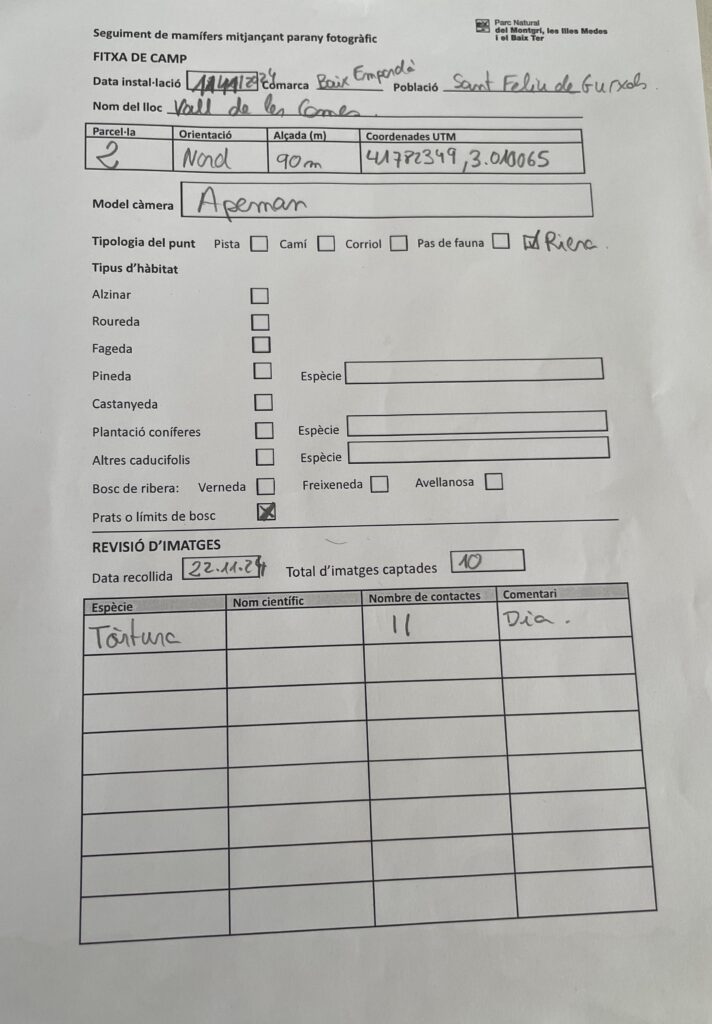 Parc Natural
del Montgrí, les Illes Medes
i el Baix Ter
Seguiment de mamífers mitjançant parany fotogràfic
FITXA DE CAMP
Data instal·lació Comarca Baix Empordà Població Sant Feliu de Guíxols.
Nom del lloc Vall de les Comes.
Parcel·la Orientació Alçada (m) Coordenades UTM
2 Nord 90m 41782349, 3.010065
Model càmera Apeman
Tipologia del punt Pista Camí Corriol Pas de fauna Riera.
Tipus d'hàbitat
Alzinar
Roureda
Fageda
Pineda Espècie
Castanyeda
Plantació coníferes Espècie
Altres caducifolis Espècie
Bosc de ribera: Verneda Freixeneda Avellanosa
Prats o límits de bosc
REVISIÓ D'IMATGES
Data recollida 22.11.24 Total d'imatges captades 10
Espècie Nom científic Nombre de contactes Comentari
Tòrtura II Dia.